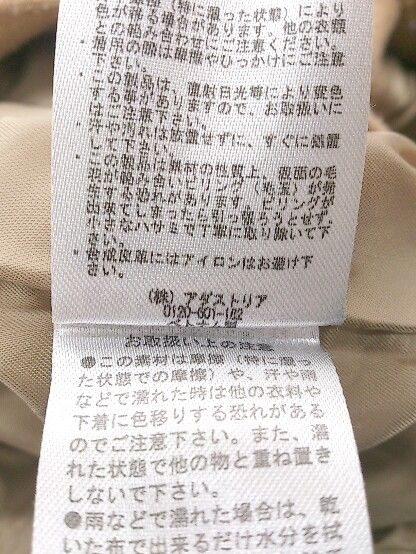 摩擦（特に湿った状態）により
色が移る場合があります。他の衣類
との組み合わせにご注意ください。
・着用の際は摩擦やひっかけにご注意
下さい。
・この製品は、直射日光等により変色
する事がありますので、お取扱いに
はご注意下さい。
・汗や汚れは放置せずに、すぐに処置
して下さい。
・この製品は素材の性質上、表面の毛
羽が絡み合いピリング（毛玉）が発
生する恐れがあります。ピリングが
出来てしまったら引っ張ろうとせず、
小さなハサミで丁寧に取り除いて下
さい。
・合成皮革にはアイロンはお避け下
さい。
（株）アダストリア
0120-601-162
お取扱い上の注意
●この素材は摩擦（特に湿っ
た状態での摩擦）や、汗や雨
などで濡れた時は他の衣料や
下着に色移りする恐れがある
のでご注意下さい。また、濡
れた状態で他の物と重ね置き
しないで下さい。
●雨などで濡れた場合は、乾
いた布で出来るだけ水分を拭